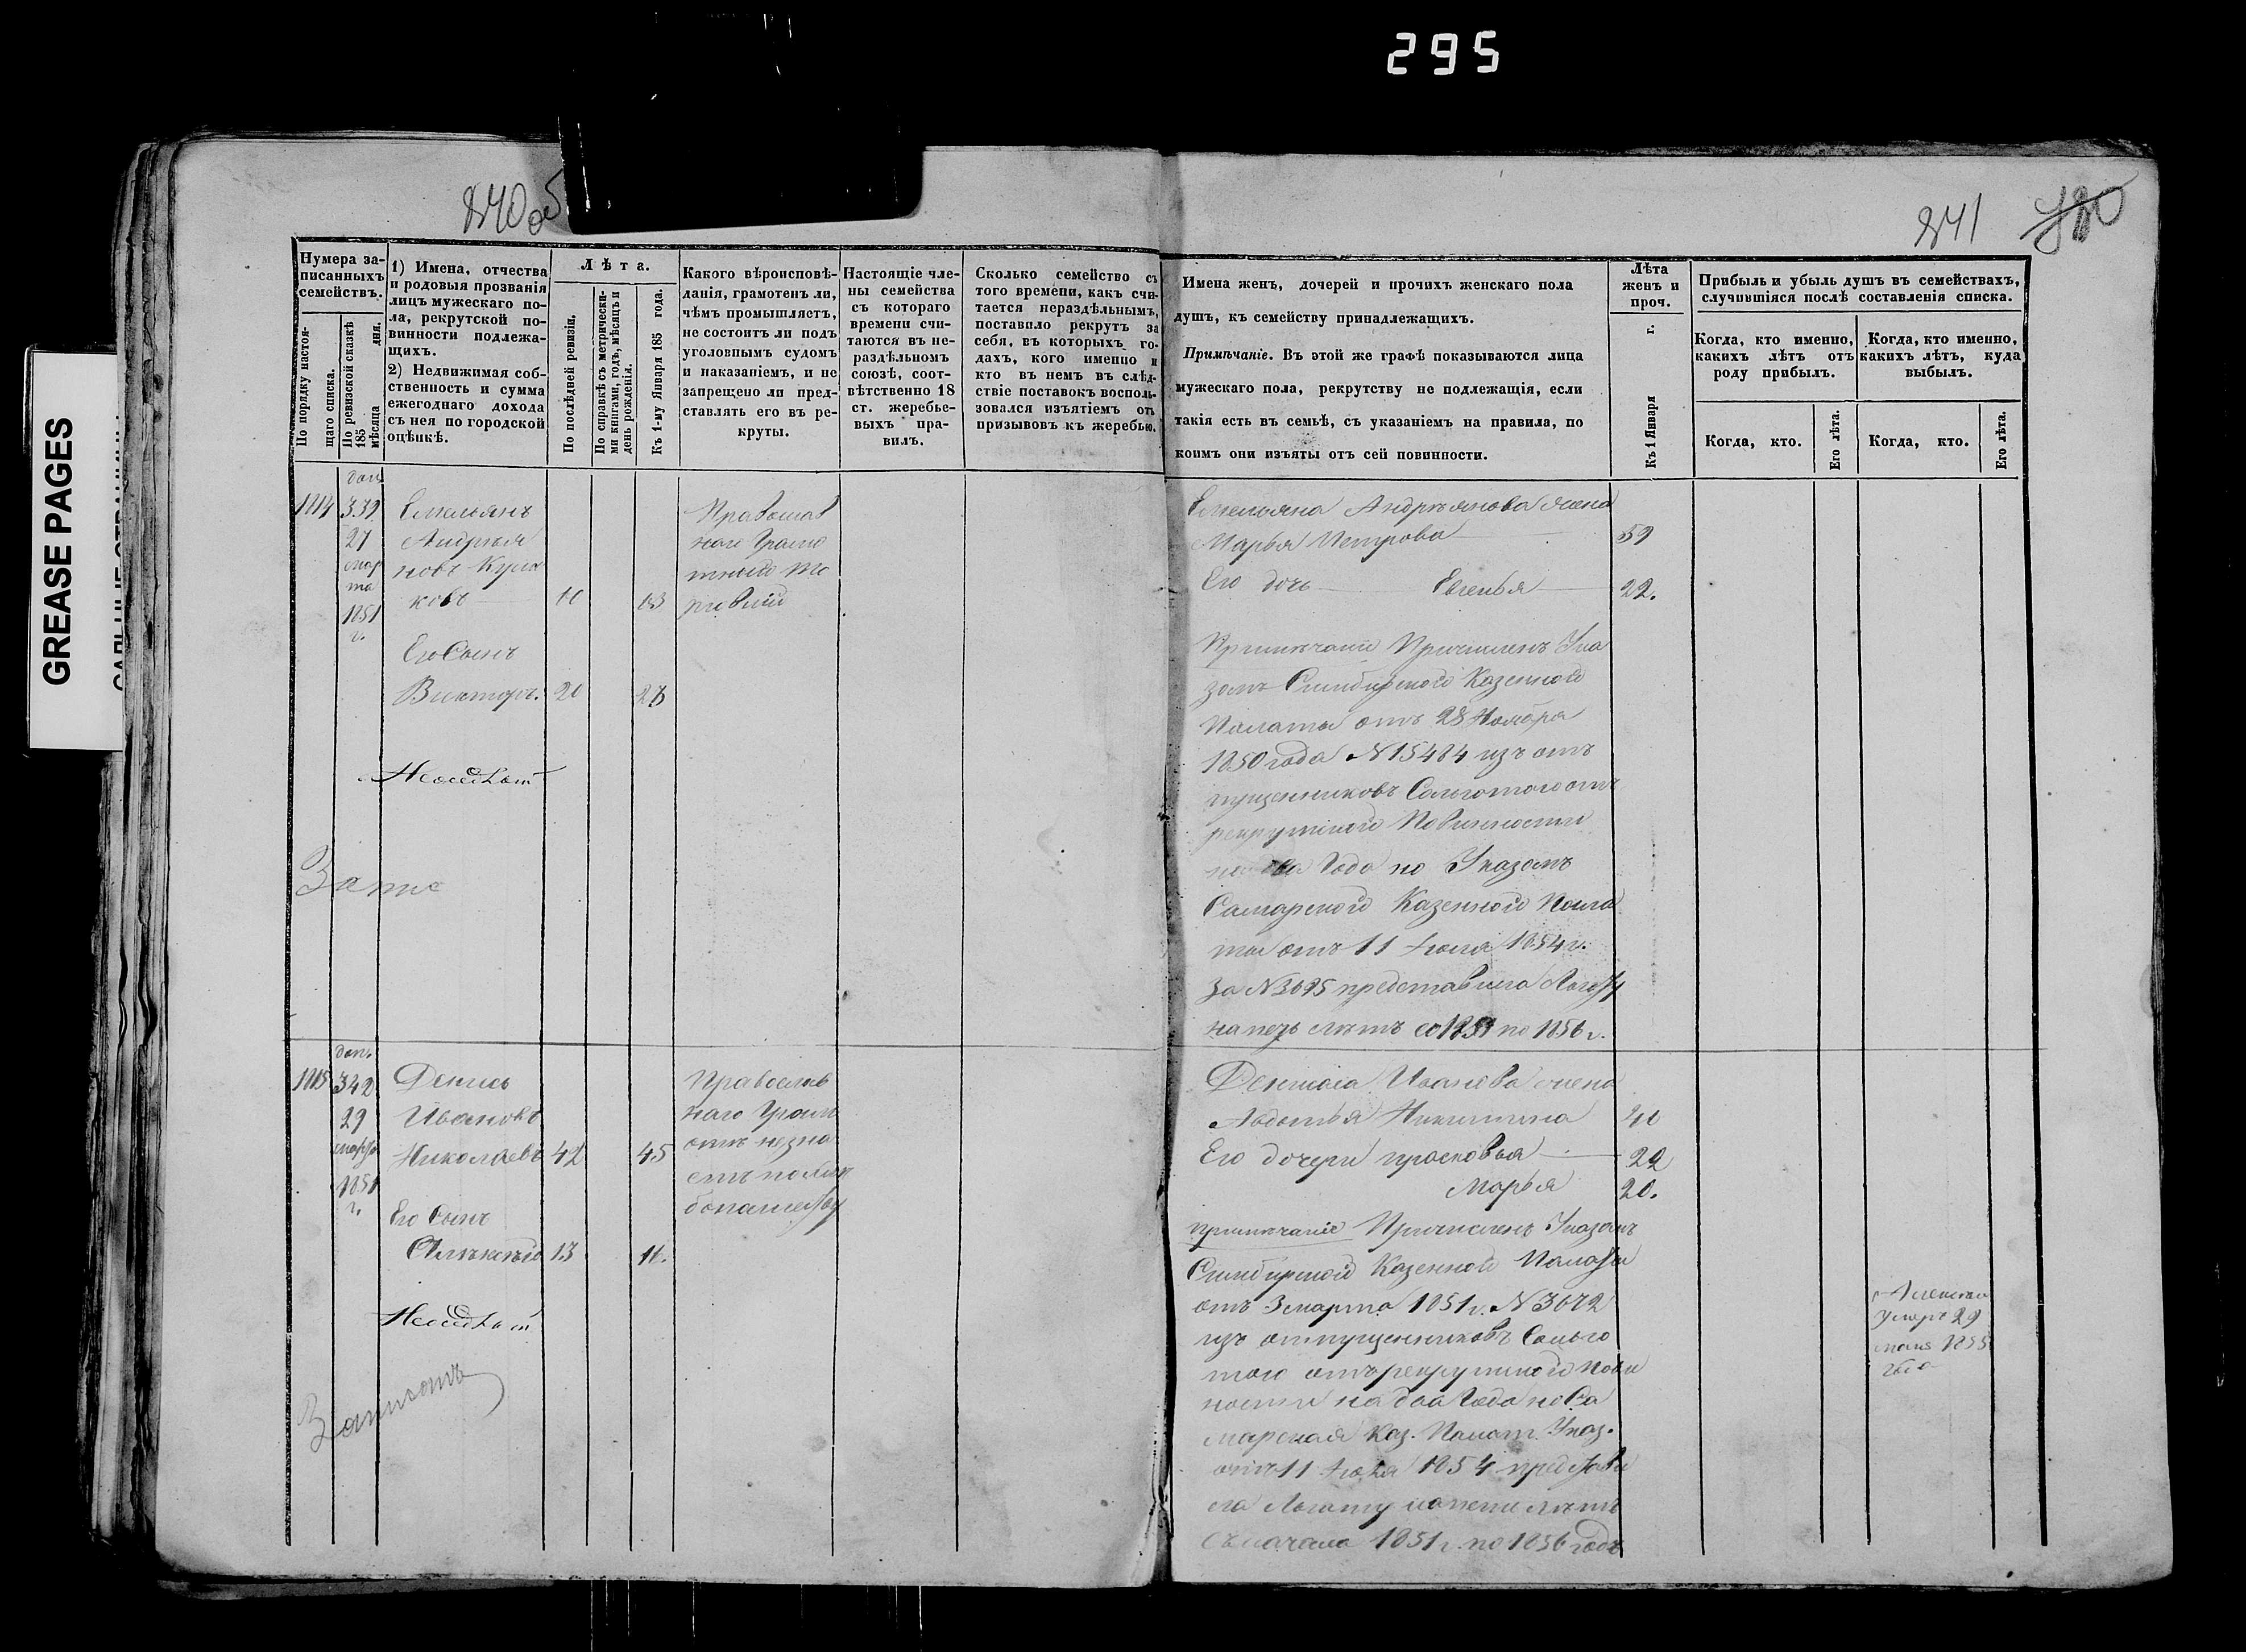 295
GREASE PAGES
240 об
Нумера за-
писанныхъ
семействъ.
По порядку настоя-
щаго списка.
По ревизской сказкѣ
185
мѣсяца дня.
1) Имена, отчества
и родовыя прозванія
лицъ мужескаго по-
ла, рекрутской по-
винности подлежа-
щихъ.
2) Недвижимая соб-
ственность и сумма
ежегоднаго дохода
съ нея по городской
оцѣнкѣ.
Лѣта.
По послѣдней ревизіи.
По справкѣ съ метрически-
ми книгами, годъ, мѣсяцъ и
день рожденія.
Къ 1-му Января 185 года.
Какого вѣроисповѣ-
данія, грамотенъ ли,
чѣмъ промышляетъ,
не состоитъ ли подъ
уголовнымъ судомъ
и наказаніемъ, и не
запрещено ли пред-
ставлять его въ ре-
круты.
Настоящіе чле-
ны семейства
съ котораго
времени счи-
таются въ не-
раздѣльномъ
союзѣ, соот-
вѣтственно 18
ст. жеребье-
выхъ пра-
вилъ.
Сколько семейство съ
того времени, какъ счи-
тается нераздѣльнымъ,
поставило рекрутъ за
себя, въ которыхъ го-
дахъ, кого именно и
кто въ немъ въ слѣд-
ствіе поставокъ восполь-
зовался изъятіемъ отъ
призывовъ къ жеребью.
доп
1114 339 Емельянъ
27 Андрѣя
мар новъ Кули
та ковъ
1851
г.
Его Сынъ
Викторъ. 20 23
Православ
наго Грамо
тный То
рговлей
Запис
доп.
1115 342 Денисъ
29 Ивановъ
марта Николаевъ 42 45
1851
г.
Его Сынъ
Алексѣй 13 16.
Православ
наго Грам
отѣ незна
етъ по хлѣ
бопашеству
Записанъ
241
Имена женъ, дочерей и прочихъ женскаго пола
душъ, къ семейству принадлежащихъ.
Примѣчаніе. Въ этой же графѣ показываются лица
мужескаго пола, рекрутству не подлежащія, если
такія есть въ семьѣ, съ указаніемъ на правила, по
коимъ они изъяты отъ сей повинности.
Лѣта
женъ и
проч.
Къ 1 Января г.
Прибыль и убыль душъ въ семействахъ,
случившіяся послѣ составленія списка.
Когда, кто именно,
какихъ лѣтъ отъ
роду прибылъ.
Когда, кто именно,
какихъ лѣтъ, куда
выбылъ.
Когда, кто.
Его лѣта.
Когда, кто.
Его лѣта.
Емельяна Андрѣянова жена
Марья Петрова 59
Его дочь Евгенья 22.
Примѣчаніе Причисленъ Ука
зомъ Симбирской Казенной
Палаты отъ 28 Ноября
1850 года N 15484 изъ отъ
пущенниковъ Сольготою отъ
рекрутской Повинности
на два Года по Указомъ
Самарской Казенной Пала
ты отъ 11 Іюля 1854 г.
за N 3695 представила Льготу
на пять лѣтъ со 1851 по 1856 г.
Дениса Иванова жена
Авдотья Никитина 40
Его дочери прасковья 22
Марья 20.
примѣчаніе Причисленъ Указомъ
Симбирской Казенной Палаты
отъ 3 марта 1851 г. N 3672
изъ отпущенниковъ Сольго
тою отърекрутской пови
ности на два Года но Са
марская Каз. Палат. Указ.
отъ 11 Іюля 1854 представи
ла Льготу на пети лѣтъ
Съ начала 1851 г. по 1856 годъ
Алексѣй
умеръ 29
мая 1855
года